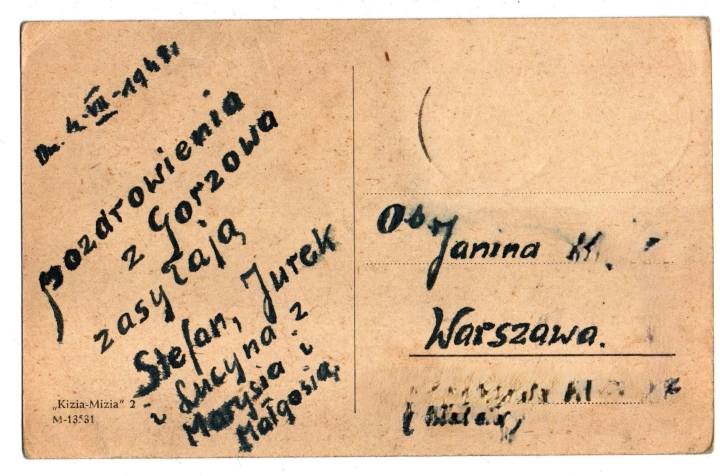 Dn. 4.VII-1948r
pozdrowienia
z Gorzowa
zasyłają
Stefan, Jurek
i Lucyna z
Marysią i
Małgosią,
„Kizia-Mizia” 2
M-13531
Ob.
Janina K.
Warszawa.